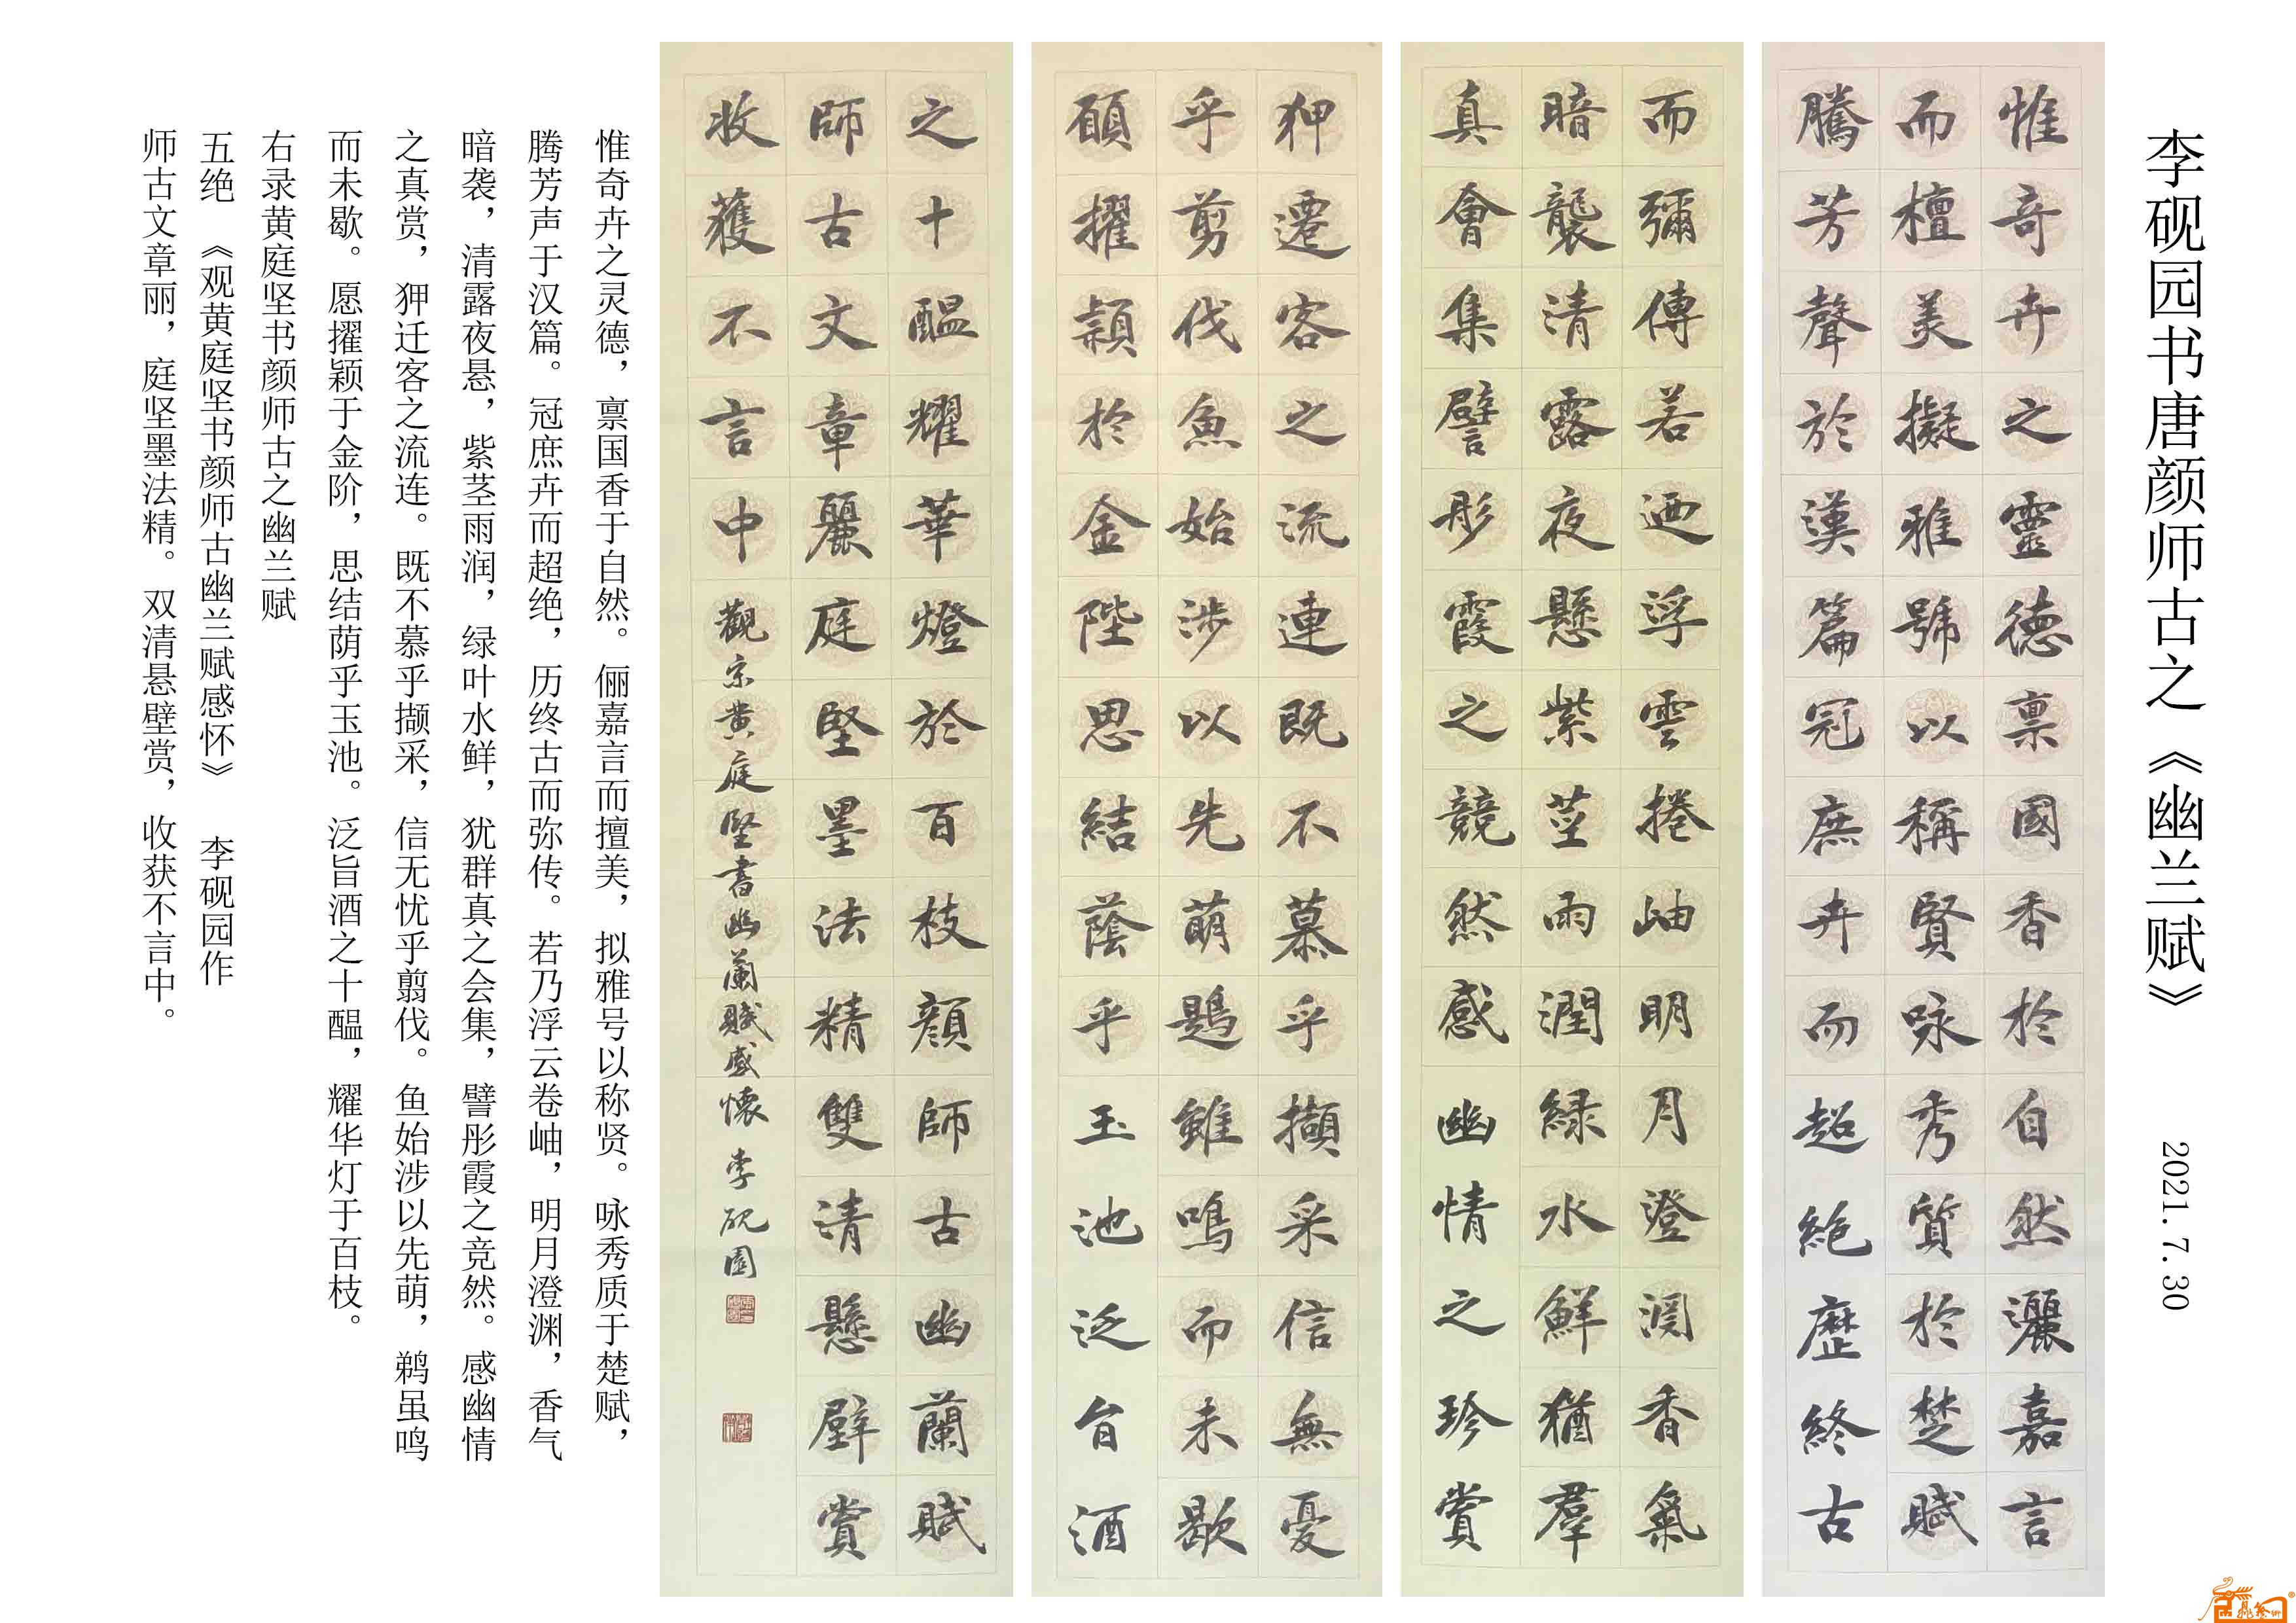 李砚园书唐颜师古之《幽兰赋》 2021.7.30
惟奇卉之靈德禀國香於自然灑嘉言
而檀美擬雅號以稱賢咏秀質於楚賦
騰芳聲於漢篇冠庶卉而超絕歷終古
而彌傳若迺浮雲捲岫明月澄渊香氣
暗襲清露夜懸紫莖雨潤緑水鮮猶羣
真會集譬彤霞之競然感幽情之珍賞
狎遷客之流連既不慕乎擷采信無憂
乎剪伐魚始涉以先萌鶗雖鳴而未歇
願擢穎於金陛思結蔭乎玉池泛旨酒
之十醖耀華燈於百枝顔師古幽蘭賦
師古文章麗庭堅墨法精雙清懸壁賞
收獲不言中 觀宗黄庭堅書幽蘭賦感懷 李硯園
惟奇卉之灵德，禀国香于自然。俪嘉言而擅美，拟雅号以称贤。咏秀质于楚赋，
腾芳声于汉篇。冠庶卉而超绝，历终古而弥传。若乃浮云卷岫，明月澄渊，香气
暗袭，清露夜悬，紫茎雨润，绿叶水鲜，犹群真之会集，譬彤霞之竞然。感幽情
之真赏，狎迁客之流连。既不慕乎撷采，信无忧乎翦伐。鱼始涉以先萌，鹈虽鸣
而未歇。愿擢颖于金阶，思结荫乎玉池。泛旨酒之十醖，耀华灯于百枝。
右录黄庭坚书颜师古之幽兰赋
五绝 《观黄庭坚书颜师古幽兰赋感怀》 李砚园作
师古文章丽，庭坚墨法精。双清悬壁赏，收获不言中。